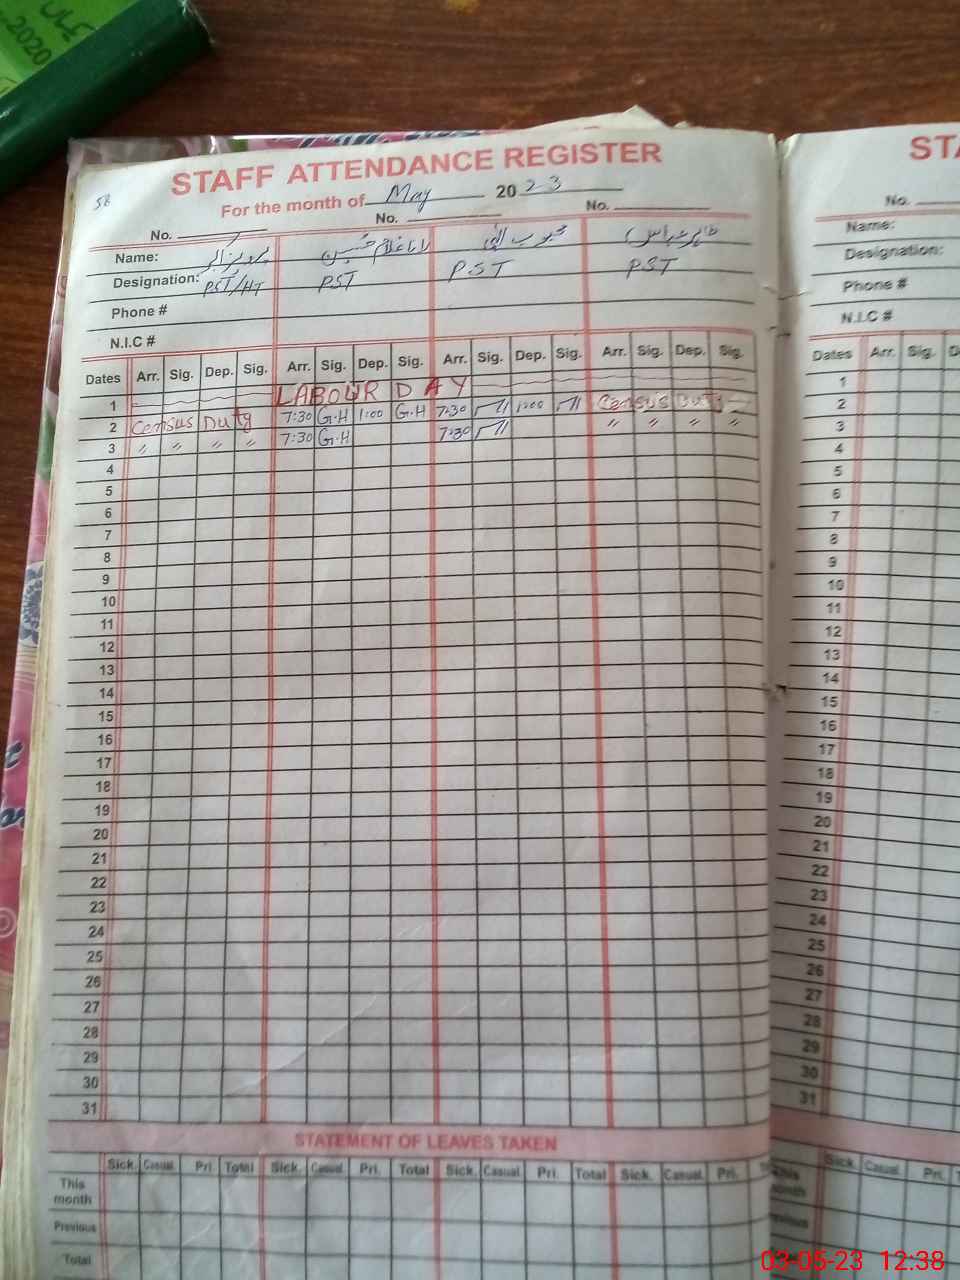 2020
STAFF ATTENDANCE REGISTER
58
For the month of May 2023
No. 1 No. No.
Name: پرویز الہی رانا غلام حسین محبوب الہی طاہر عباس
Designation: PST/HT PST PST PST
Phone #
N.I.C #
Dates Arr. Sig. Dep. Sig. Arr. Sig. Dep. Sig. Arr. Sig. Dep. Sig. Arr. Sig. Dep. Sig.
1 LABOUR DAY
2 Census Duty 7:30 G.H 1:00 G.H 7:30 1:00 Census Duty
3 " " " " 7:30 G.H 7:30 " " " "
4
5
6
7
8
9
10
11
12
13
14
15
16
17
18
19
20
21
22
23
24
25
26
27
28
29
30
31
STATEMENT OF LEAVES TAKEN
Sick. Casual. Pri. Total Sick. Casual. Pri. Total Sick. Casual. Pri. Total Sick. Casual. Pri.
This month
Previous
Total
STA
No.
Name:
Designation:
Phone #
N.I.C #
Dates Arr. Sig. D
1
2
3
4
5
6
7
8
9
10
11
12
13
14
15
16
17
18
19
20
21
22
23
24
25
26
27
28
29
30
31
Sick. Casual. Pri.
03-05-23 12:38